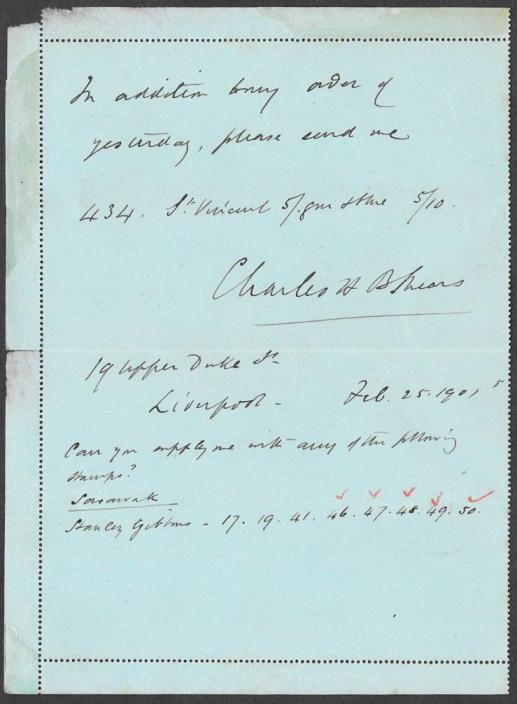 In addition to my order of
yesterday, please send me
434. St. Vincent 5/. grn & blue 5/10.
Charles H B Shears
19 Upper Duke St.
Liverpool - Feb. 25. 1901
Can you supply me with any of the following
stamps?
Sarawak
Stanley Gibbons - 17. 19. 41. 46. 47. 48. 49. 50.